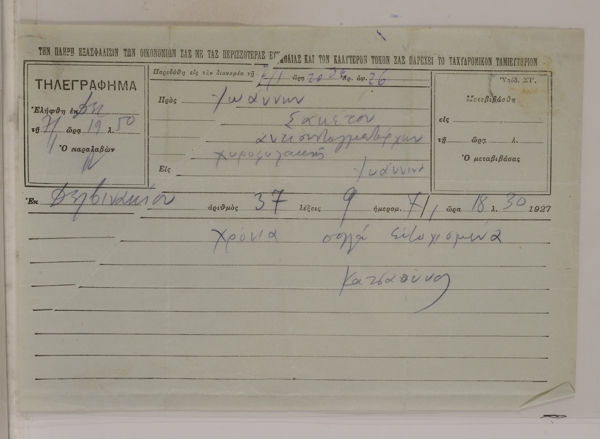 ΤΗΝ ΠΛΗΡΗ ΕΞΑΣΦΑΛΙΣΙΝ ΤΩΝ ΟΙΚΟΝΟΜΙΩΝ ΣΑΣ ΜΕ ΤΑΣ ΠΕΡΙΣΣΟΤΕΡΑΣ ΚΑΙ ΤΟΝ ΚΑΛΛΙΤΕΡΟΝ ΤΟΚΟΝ ΣΑΣ ΠΑΡΕΧΕΙ ΤΟ ΤΑΧΥΔΡΟΜΙΚΟΝ ΤΑΜΙΕΥΤΗΡΙΟΝ
ΤΗΛΕΓΡΑΦΗΜΑ
Ἐλήφθη ἐκ
τῇ 7/1 ὥρᾳ 19 λ. 50
Ὁ παραλαβὼν
Παρεδόθη εἰς τὸν διανομέα τῇ 7/1 ὥρᾳ 20
Πρὸς Ἰωάννην
Σακέτον
ἀντισυνταγματάρχην
χωροφυλακῆς
Εἰς Ἰωάννινα
Μετεβιβάσθη
εἰς
τῇ ὥρᾳ λ.
Ὁ μεταβιβάσας
Ἐκ Δελβινακίου ἀριθμὸς 37 λέξεις 9 ἡμερομ. 7/1, ὥρα 18 λ. 30 1927
Χρόνια πολλά εὐτυχισμένα